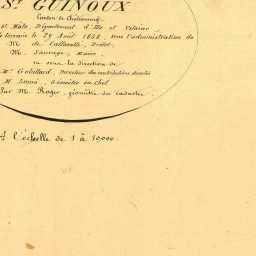 St GUINOUX
Canton de Châteauneuf
St Malo, Département d'Ille et Vilaine,
le terrain le 29 Août 1828, sous l'administration de
M. de Préfet,
M. Sauvage, Maire,
et sous la direction de
Mr Gobillard, Directeur des contributions directes
M. Géomètre en Chef
Par M. Roger, géomètre du Cadastre.
A l'échelle de 1 à 10,000.